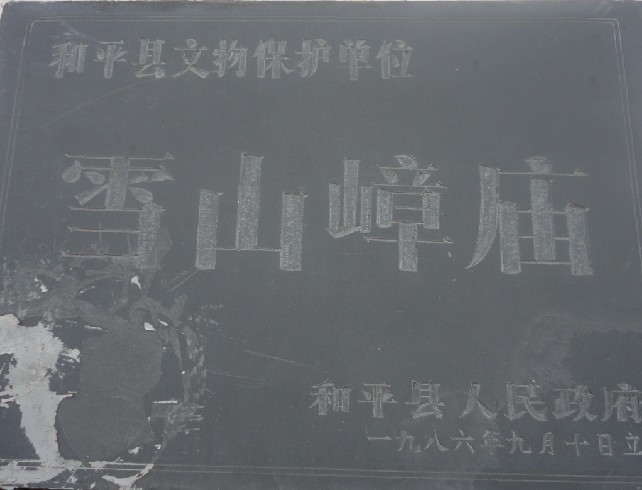 和平县文物保护单位
雪山嶂庙
和平县人民政府
一九八六年九月十日立